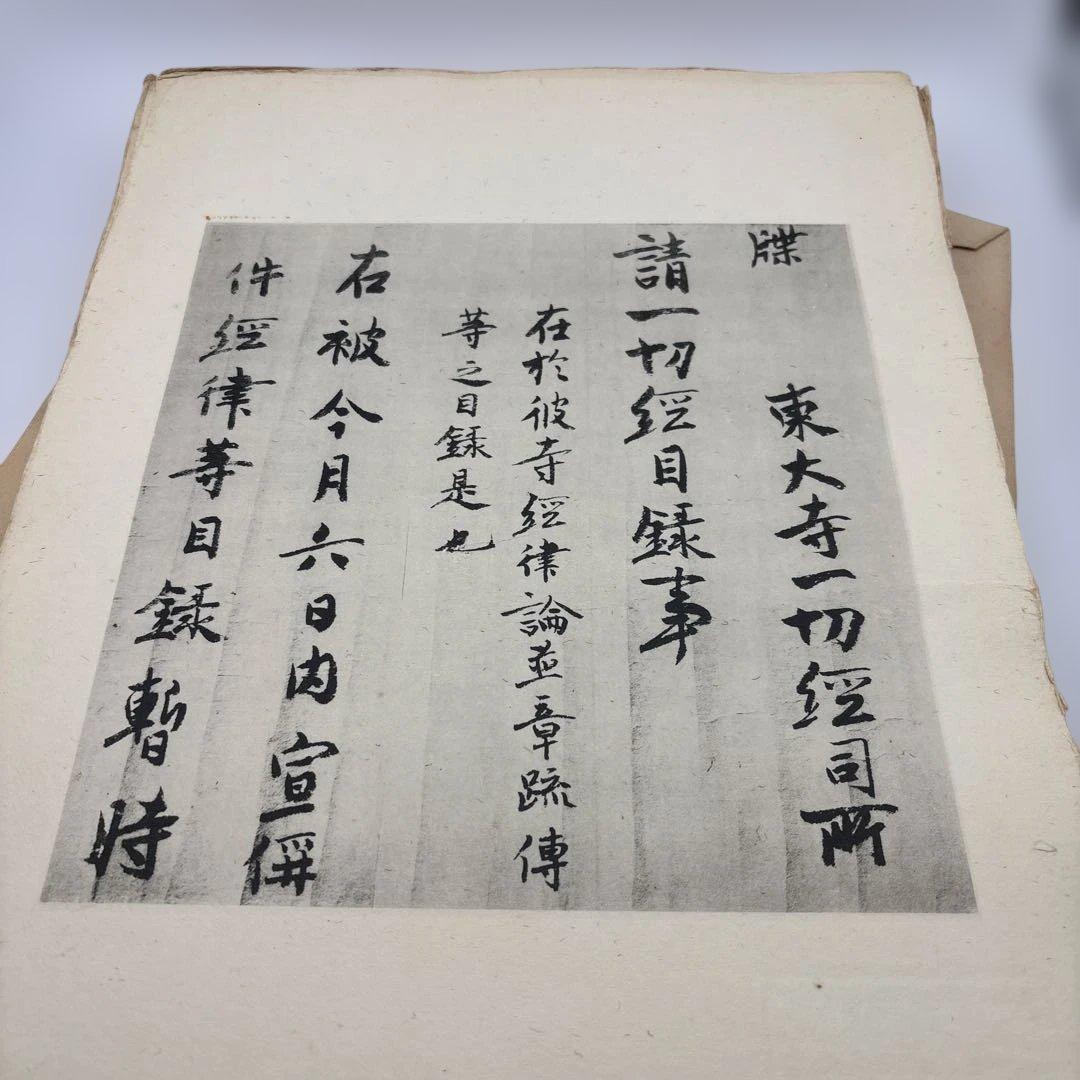 牒 東大寺一切経司所
請一切経目録事
在於彼寺経律論並章疏傳
等之目録是也
右被今月六日内宣偁
件経律等目録暫時